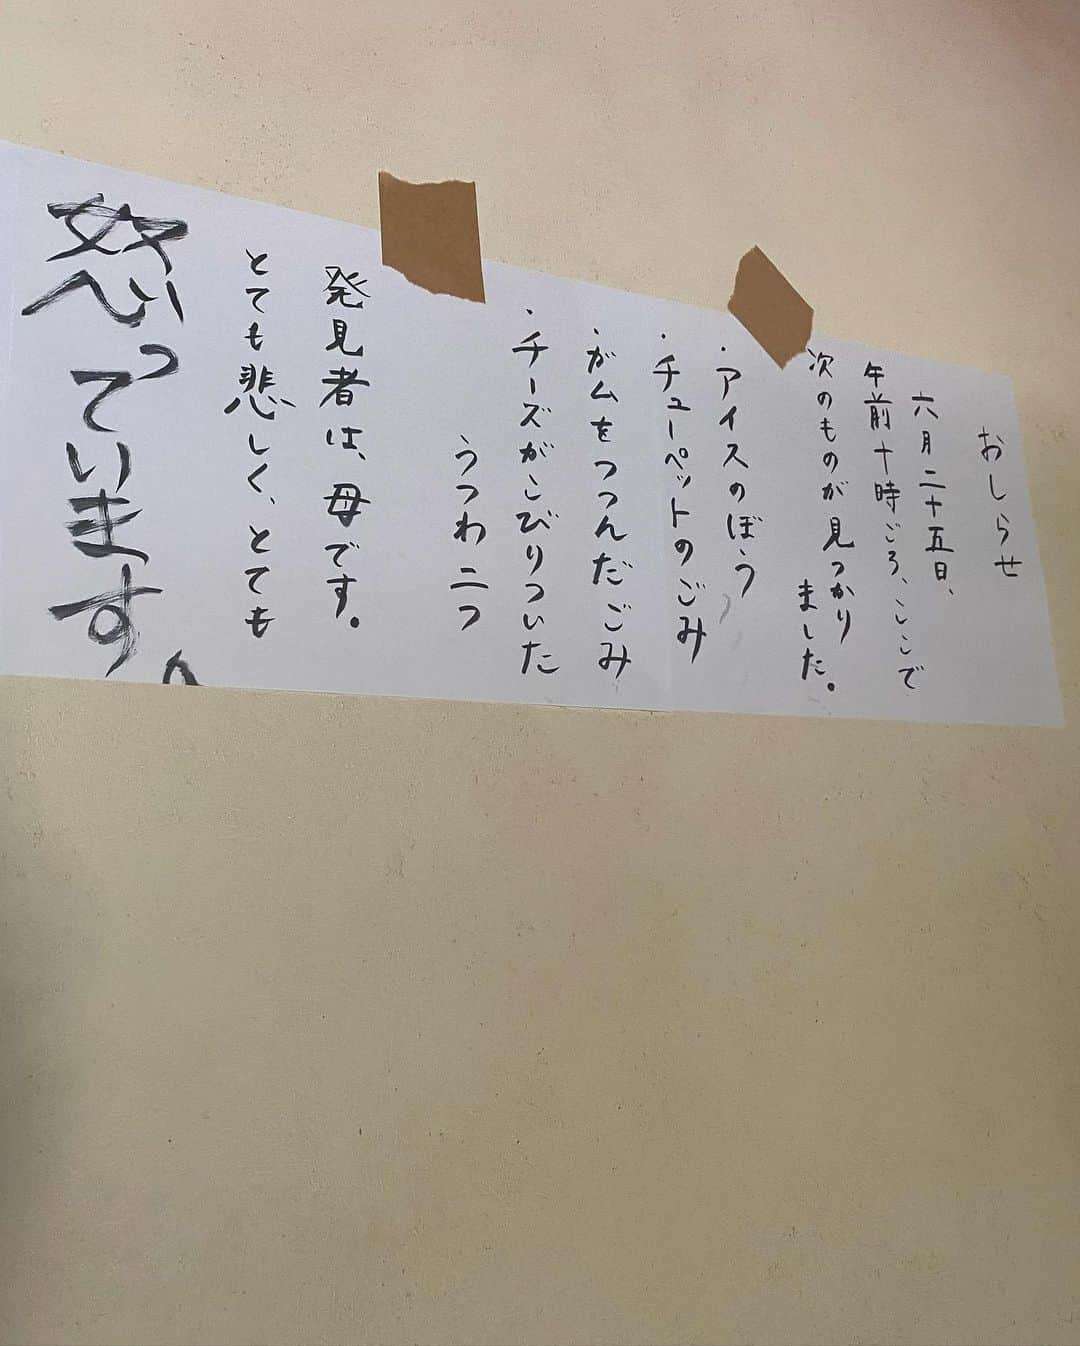 おしらせ
六月二十五日、
午前十時ごろ、ここで
次のものが見つかり
ました。
・アイスのぼう
・チューペットのごみ
・ガムをつつんだごみ
・チーズがこびりついた
うつわ二つ
発見者は、母です。
とても悲しく、とても
怒っています。